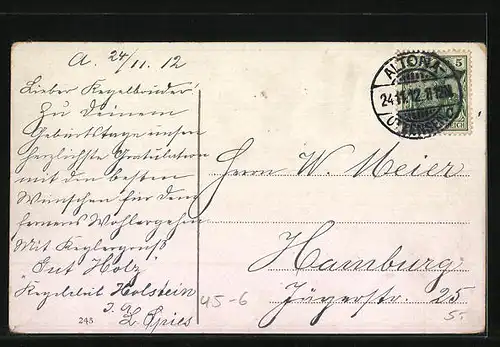 A. 24/11. 12
Lieber Kegelbruder!
Zu Deinem
Geburtstage unsere
herzlichste Gratulation
mit den besten
Wünschen für Dein
ferneres Wohlergehen
Mit Keglergruß
"Gut Holz"
Kegelklub Holstein
I. A.
L. Spies
245
45-6
ALTONA
24.11.12. 11-12
OTTENSEN
5
REICH
Herrn W. Meier
Hamburg
Jägerstr. 25
5.-